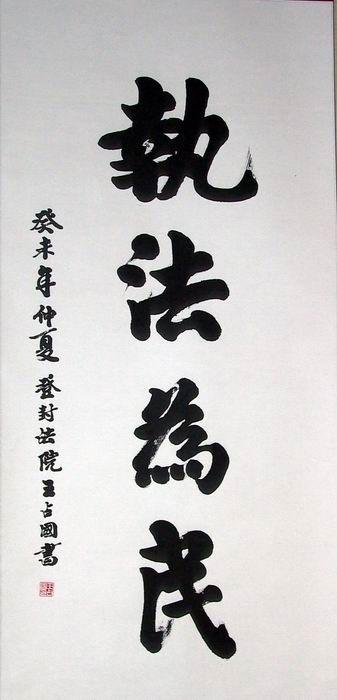 執法為民
癸未年仲夏 登封法院 王占國書